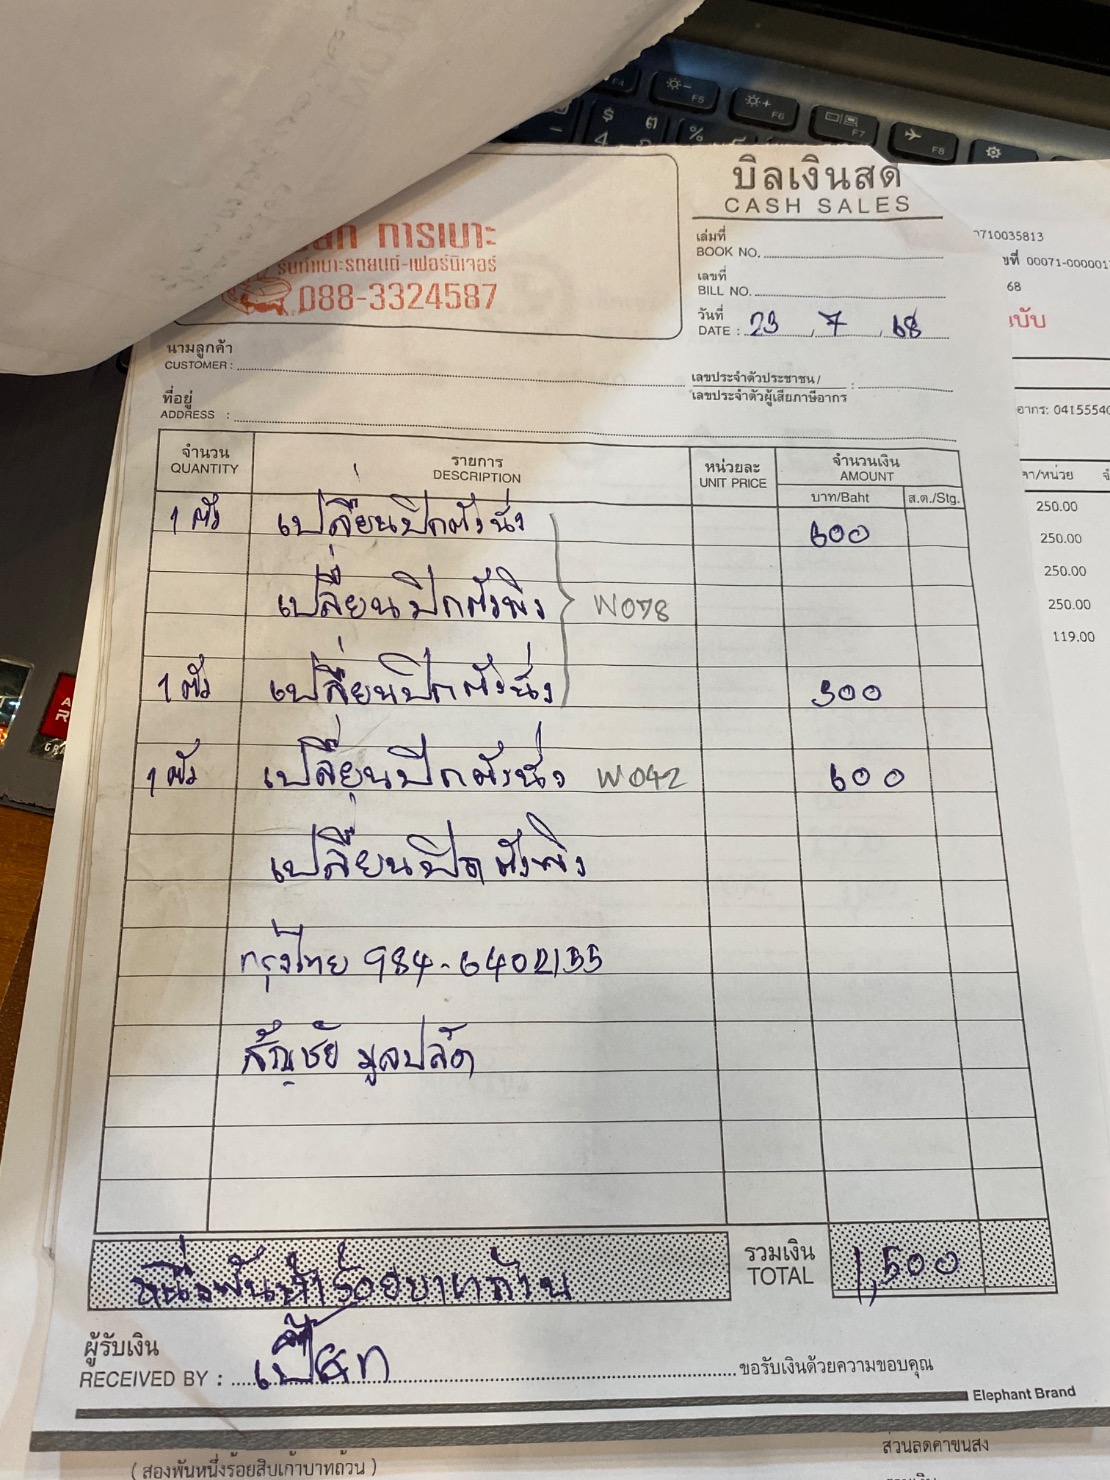 บิลเงินสด
CASH SALES
การเบาะ
รับทำเบาะรถยนต์-เฟอร์นิเจอร์
088-3324587
เล่มที่
BOOK NO.
เลขที่
BILL NO.
วันที่
DATE : 29 7 68
นามลูกค้า
CUSTOMER :
เลขประจำตัวประชาชน /
เลขประจำตัวผู้เสียภาษีอากร :
ที่อยู่
ADDRESS :
จำนวน รายการ หน่วยละ จำนวนเงิน
QUANTITY DESCRIPTION UNIT PRICE AMOUNT
บาท/Baht ส.ต./Stg.
1 ตัว เปลี่ยนปีกตัวนั่ง 600
เปลี่ยนปีกตัวพิง W078
1 ตัว เปลี่ยนปีกตัวนั่ง 300
1 ตัว เปลี่ยนปีกตัวนั่ง W042 600
เปลี่ยนปีกตัวพิง
กรุงไทย 984-6402155
สัญชัย มูลปลัด
หนึ่งพันห้าร้อยบาทถ้วน
รวมเงิน
TOTAL 1,500
ผู้รับเงิน
RECEIVED BY : เปี๊ยก ขอรับเงินด้วยความขอบคุณ
Elephant Brand
0710035813
00071-000001
68
250.00
250.00
250.00
250.00
119.00
(สองพันหนึ่งร้อยสิบเก้าบาทถ้วน)
ส่วนลดค่าขนส่ง
F5
F6
F7
F8